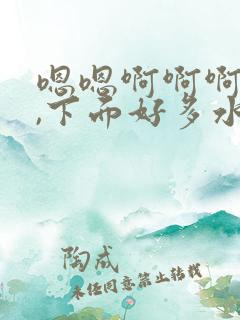 嗯嗯啊啊啊
,下而好多水
陶成
未经同意禁止转载